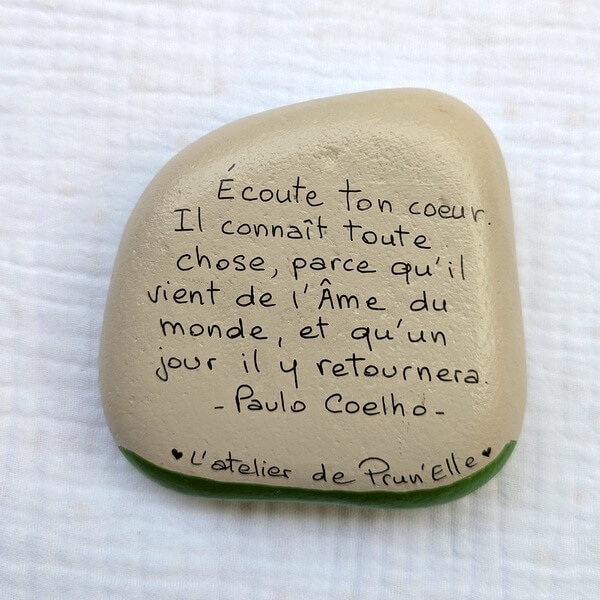 Écoute ton coeur.
Il connaît toute
chose, parce qu'il
vient de l'Âme du
monde, et qu'un
jour il y retournera.
- Paulo Coelho -
♥ L'atelier de Prun'Elle ♥